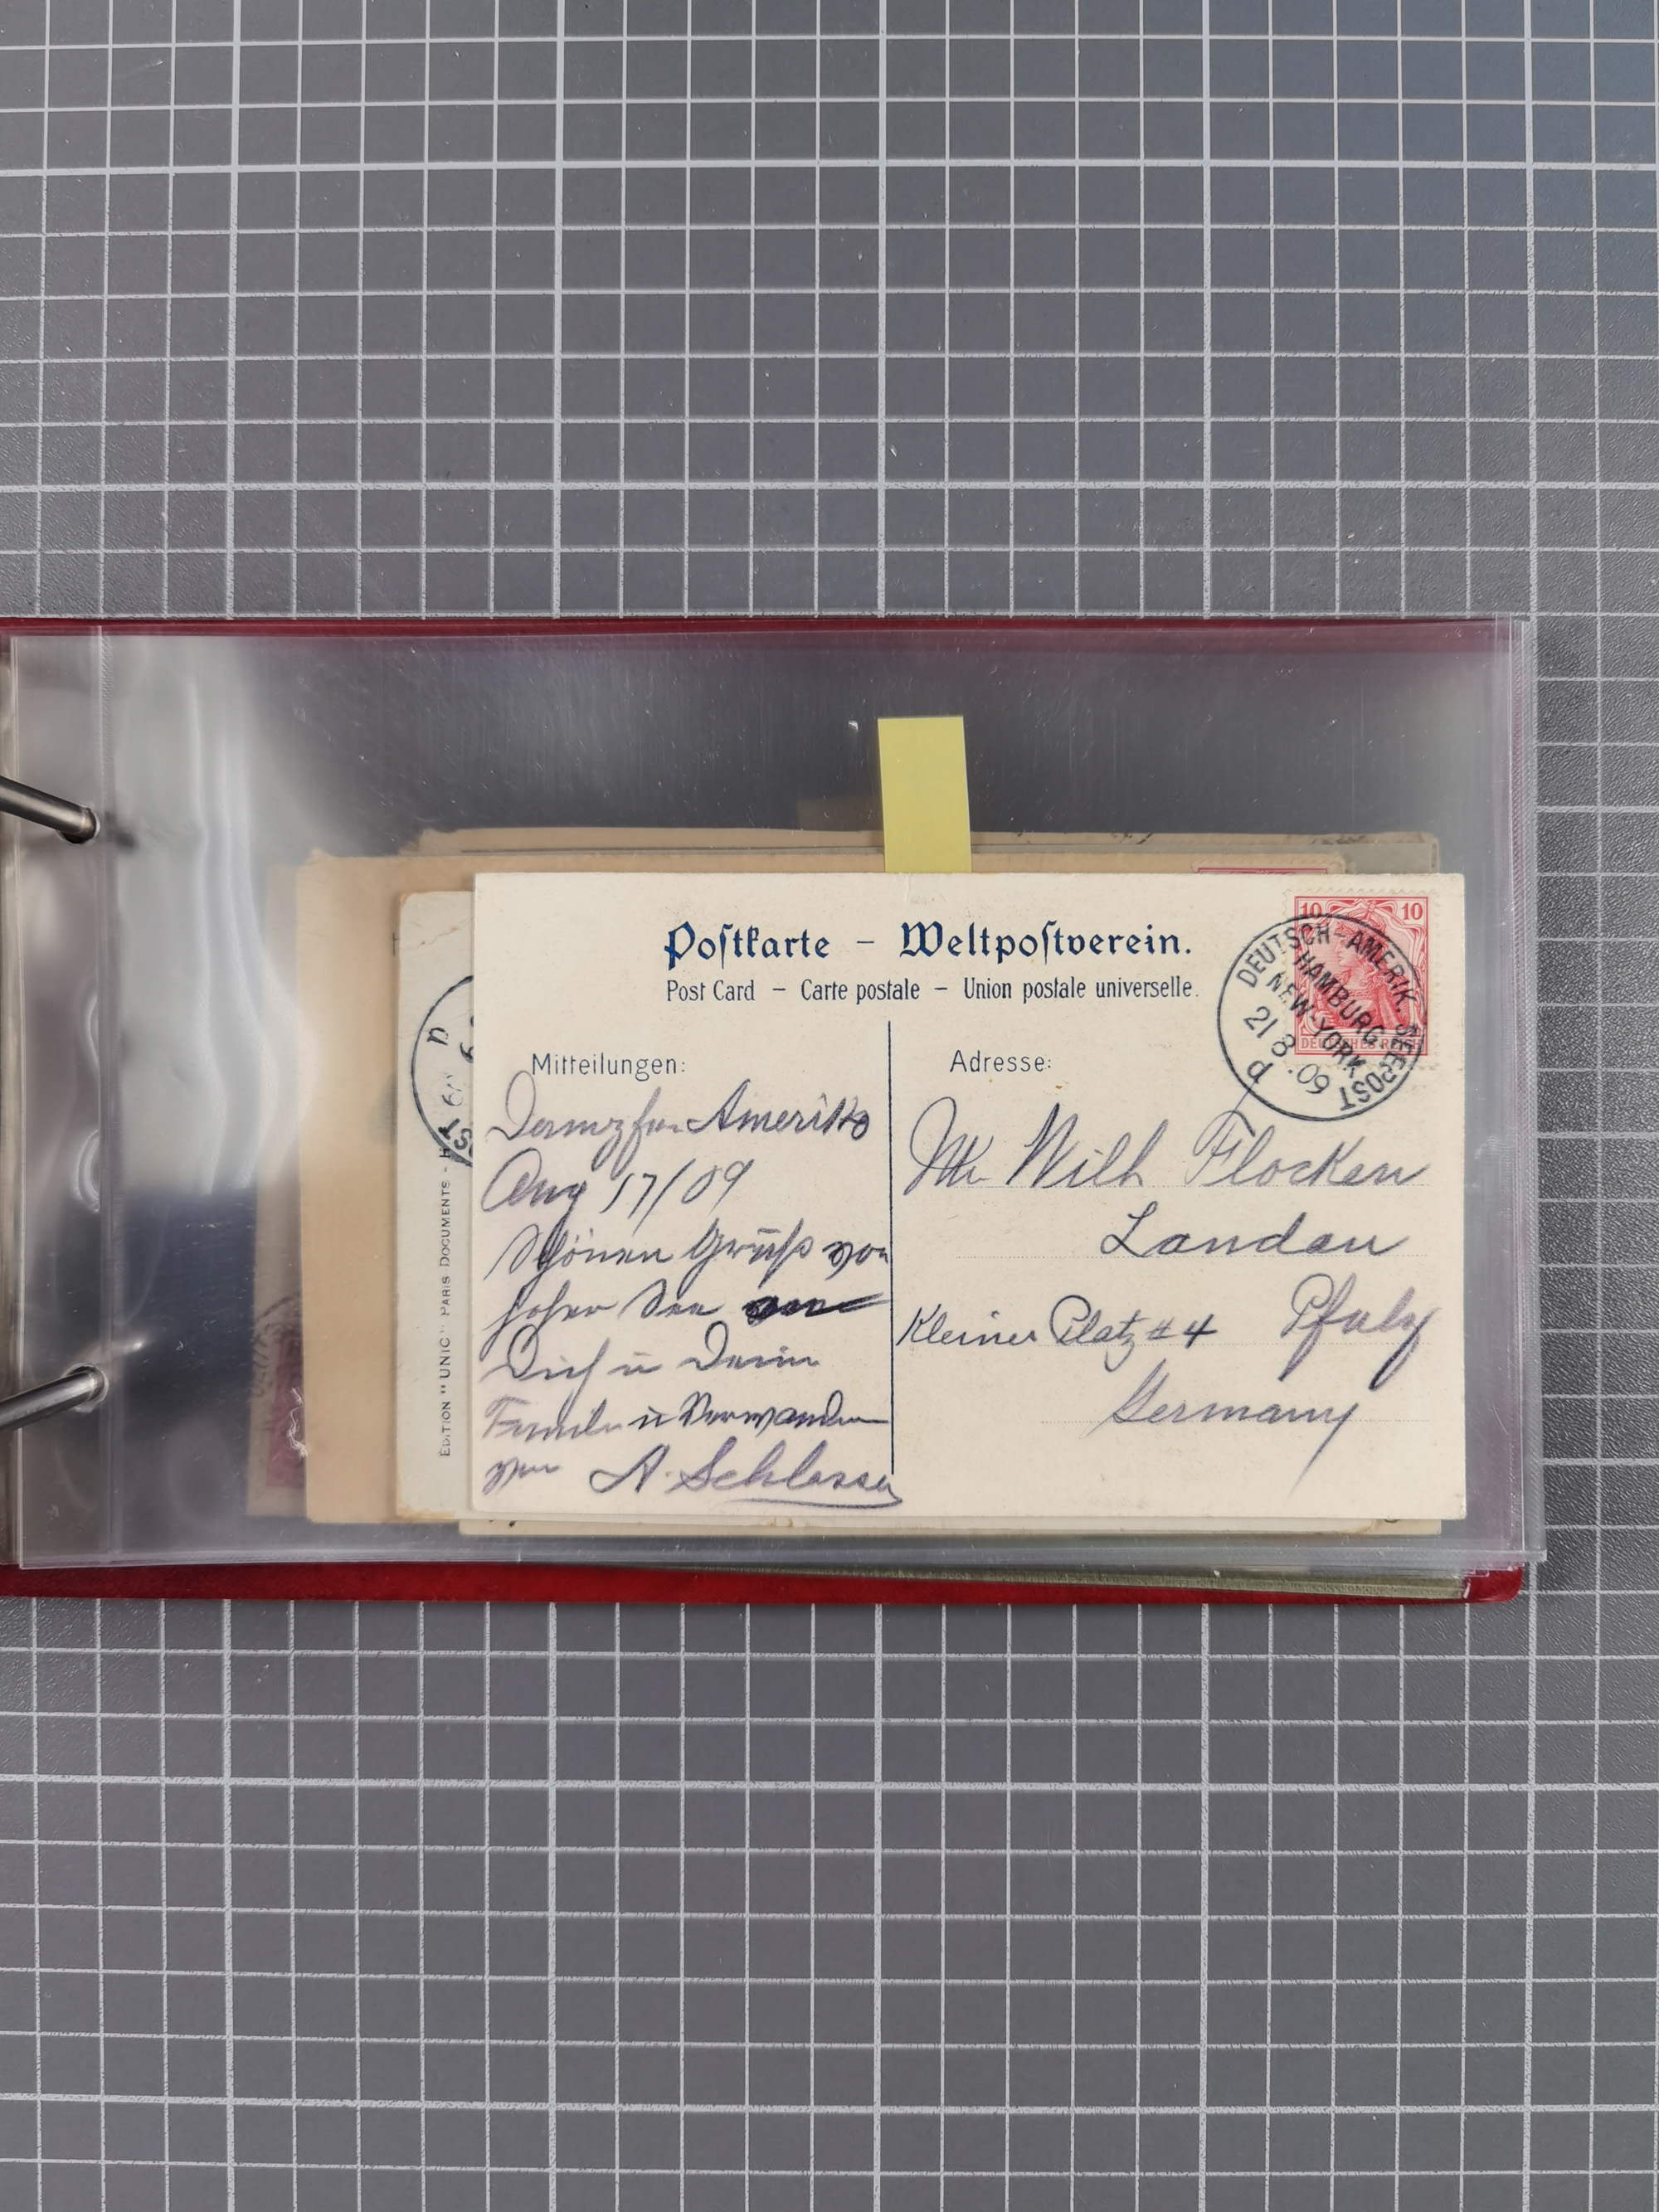 Postkarte – Weltpostverein.
Post Card – Carte postale – Union postale universelle.
10 10
DEUTSCHES REICH
DEUTSCH-AMERIK. SEEPOST
HAMBURG
NEW-YORK
21 8.09
d
Mitteilungen:
Dampfer Amerika
Aug 17/09
Schönen Gruß von
hoher See
Dich u Deine
Familie u Verwanden
von A. Schlosser
Adresse:
Mr Wilh Flocken
Landau
Kleiner Platz # 4 Pfalz
Germany
ÉDITION "UNIC" PARIS DOCUMENTS